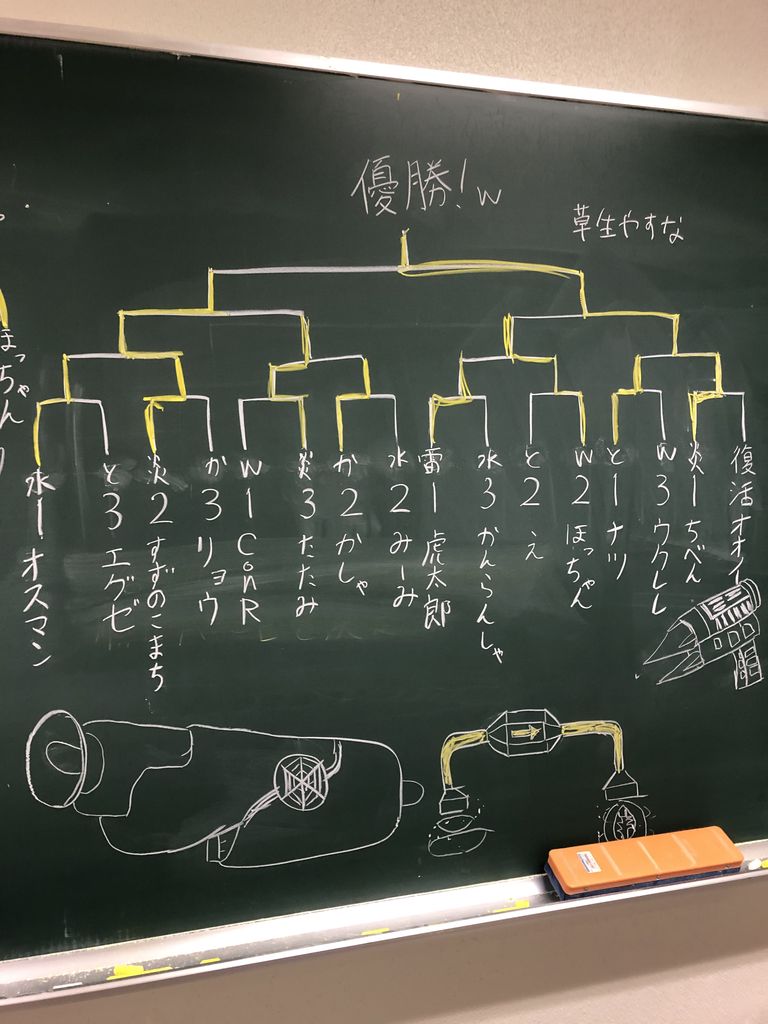 優勝!w
草生やすな
ほっちゃん
水1オスマン
と3エグゼ
炎2すずのこまち
か3リョウ
W1ConR
炎3たたみ
か2かしゃ
水2みーみ
雷1虎太郎
水3かんらんしゃ
と2え
W2ほっちゃん
と1ナツ
W3ウクレレ
炎1ちべん
復活オオイ